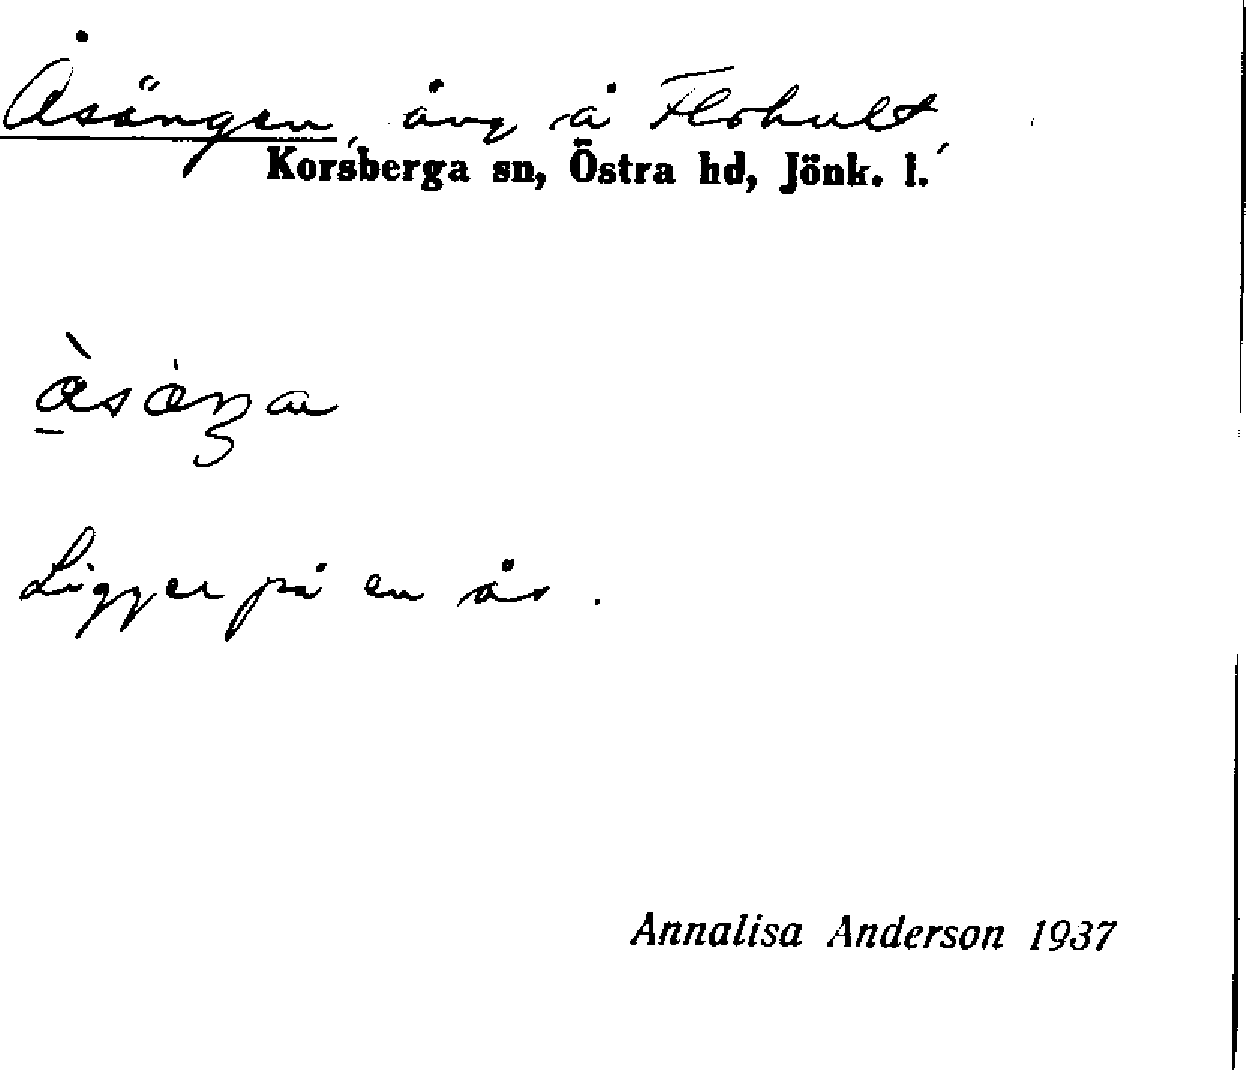 Åsängen, äng å Flohult,
Korsberga sn, Östra hd, Jönk. l.
Ligger på en ås.
Annalisa Anderson 1937